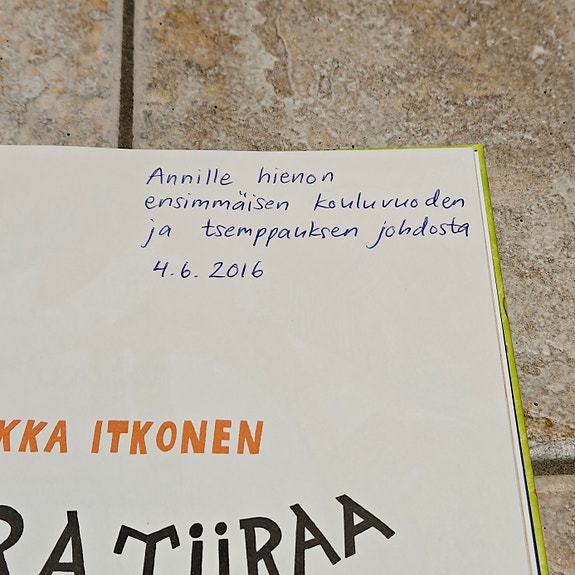 Annille hienon
ensimmäisen kouluvuoden
ja tsemppauksen johdosta
4.6. 2016
KKA ITKONEN
RA TiiRAA